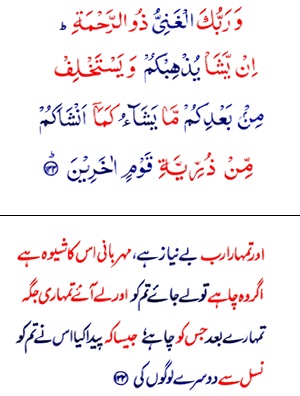 وَرَبُّكَ الْغَنِىُّ ذُو الرَّحْمَةِ ؕ
اِنْ يَّشَاْ يُذْهِبْكُمْ وَيَسْتَخْلِفْ
مِنْۢ بَعْدِكُمْ مَّا يَشَآءُ كَمَاۤ اَنْشَاَكُمْ
مِّنْ ذُرِّيَّةِ قَوْمٍ اٰخَرِيْنَ ؕ ﴿۱۳۳﴾
اور تمہارا رب بے نیاز ہے، مہربانی اس کا شیوہ ہے
اگر وہ چاہے تو لے جائے تم کو اور لے آئے تمہاری جگہ
تمہارے بعد جس کو چاہے جیسا کہ پیدا کیا اس نے تم کو
نسل سے دوسرے لوگوں کی ﴿۱۳۳﴾